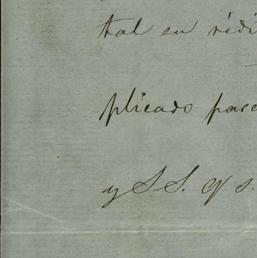 tral su rédi
plicado para
y S. S. Q. S.